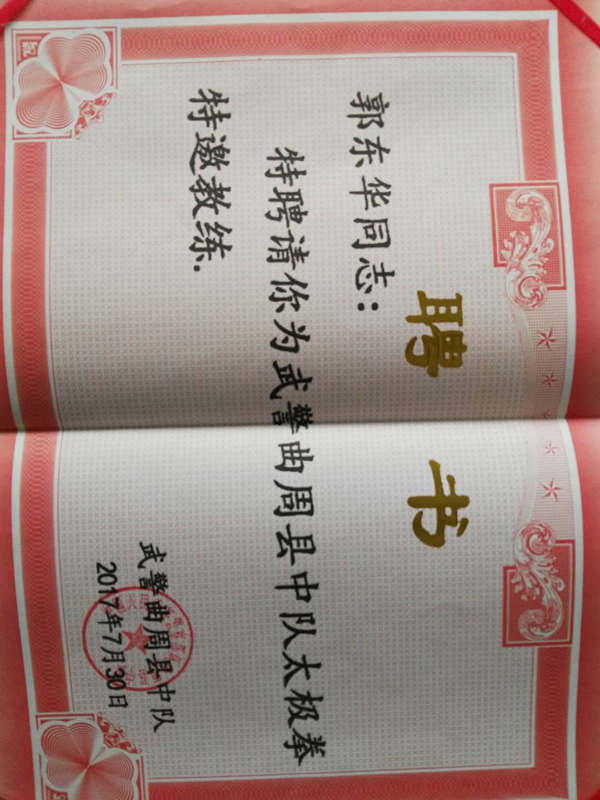 聘书
郭东华同志：
特聘请你为武警曲周县中队太极拳
特邀教练.
武警曲周县中队
2017年7月30日